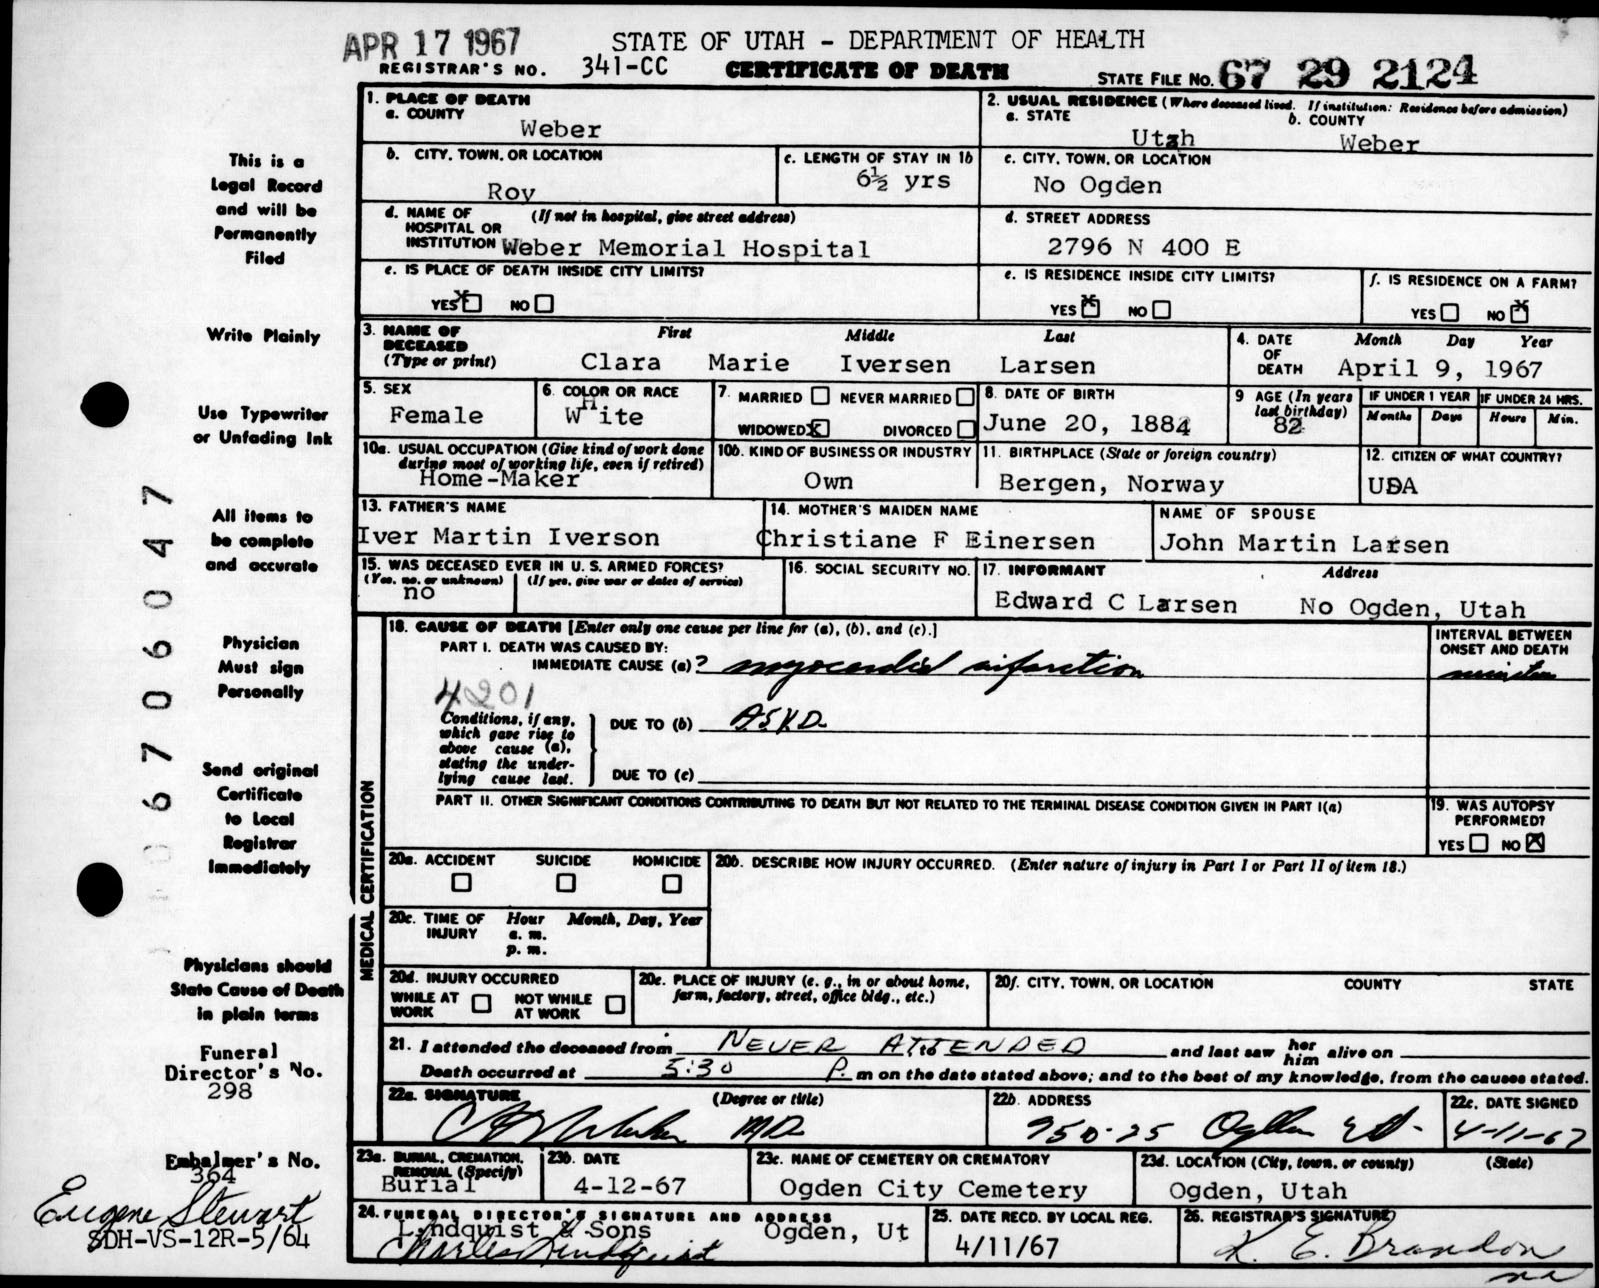 APR 17 1967
STATE OF UTAH - DEPARTMENT OF HEALTH
REGISTRAR'S NO. 341-CC
CERTIFICATE OF DEATH
STATE FILE NO. 67 29 2124
This is a
Legal Record
and will be
Permanently
Filed
Write Plainly
Use Typewriter
or Unfading Ink
All items to
be complete
and accurate
Physician
Must sign
Personally
Send original
Certificate
to Local
Registrar
Immediately
Physicians should
State Cause of Death
in plain terms
Funeral
Director's No.
298
Embalmer's No.
364
Eugene Stewart
SDH-VS-12R-5/64
06706047
1. PLACE OF DEATH
a. COUNTY
Weber
2. USUAL RESIDENCE (Where deceased lived. If institution: Residence before admission)
a. STATE
Utah
b. COUNTY
Weber
b. CITY, TOWN, OR LOCATION
Roy
c. LENGTH OF STAY IN 1b
6½ yrs
c. CITY, TOWN, OR LOCATION
No Ogden
d. NAME OF HOSPITAL OR INSTITUTION (If not in hospital, give street address)
Weber Memorial Hospital
d. STREET ADDRESS
2796 N 400 E
e. IS PLACE OF DEATH INSIDE CITY LIMITS?
YES X NO
e. IS RESIDENCE INSIDE CITY LIMITS?
YES X NO
f. IS RESIDENCE ON A FARM?
YES NO X
3. NAME OF DECEASED (Type or print)
First Middle Last
Clara Marie Iversen Larsen
4. DATE OF DEATH
Month Day Year
April 9, 1967
5. SEX
Female
6. COLOR OR RACE
White
7. MARRIED NEVER MARRIED
WIDOWED X DIVORCED
8. DATE OF BIRTH
June 20, 1884
9 AGE (In years last birthday)
82
IF UNDER 1 YEAR
Months Days
IF UNDER 24 HRS.
Hours Min.
10a. USUAL OCCUPATION (Give kind of work done during most of working life, even if retired)
Home-Maker
10b. KIND OF BUSINESS OR INDUSTRY
Own
11. BIRTHPLACE (State or foreign country)
Bergen, Norway
12. CITIZEN OF WHAT COUNTRY?
USA
13. FATHER'S NAME
Iver Martin Iverson
14. MOTHER'S MAIDEN NAME
Christiane F Einersen
NAME OF SPOUSE
John Martin Larsen
15. WAS DECEASED EVER IN U. S. ARMED FORCES?
(Yes, no, or unknown) (If yes, give war or dates of service)
no
16. SOCIAL SECURITY NO.
17. INFORMANT Address
Edward C Larsen No Ogden, Utah
MEDICAL CERTIFICATION
18. CAUSE OF DEATH [Enter only one cause per line for (a), (b), and (c).]
PART I. DEATH WAS CAUSED BY:
IMMEDIATE CAUSE (a) ? myocardial infarction
INTERVAL BETWEEN ONSET AND DEATH
minutes
4201
Conditions, if any, which gave rise to above cause (a), stating the underlying cause last.
DUE TO (b) A.S.V.D.
DUE TO (c)
PART II. OTHER SIGNIFICANT CONDITIONS CONTRIBUTING TO DEATH BUT NOT RELATED TO THE TERMINAL DISEASE CONDITION GIVEN IN PART I(a)
19. WAS AUTOPSY PERFORMED?
YES NO X
20a. ACCIDENT SUICIDE HOMICIDE
20b. DESCRIBE HOW INJURY OCCURRED. (Enter nature of injury in Part I or Part II of item 18.)
20c. TIME OF INJURY Hour Month, Day, Year
a. m.
p. m.
20d. INJURY OCCURRED
WHILE AT WORK NOT WHILE AT WORK
20e. PLACE OF INJURY (e. g., in or about home, farm, factory, street, office bldg., etc.)
20f. CITY, TOWN, OR LOCATION COUNTY STATE
21. I attended the deceased from NEVER ATTENDED to and last saw her him alive on
Death occurred at 5:30 P. m on the date stated above; and to the best of my knowledge, from the causes stated.
22a. SIGNATURE (Degree or title)
MD
22b. ADDRESS
950-25 Ogden
22c. DATE SIGNED
4-11-67
23a. BURIAL, CREMATION, REMOVAL (Specify)
Burial
23b. DATE
4-12-67
23c. NAME OF CEMETERY OR CREMATORY
Ogden City Cemetery
23d. LOCATION (City, town, or county) (State)
Ogden, Utah
24. FUNERAL DIRECTOR'S SIGNATURE AND ADDRESS
Lindquist & Sons Ogden, Ut
Charles Lindquist
25. DATE RECD. BY LOCAL REG.
4/11/67
26. REGISTRAR'S SIGNATURE
K. E. Brandon